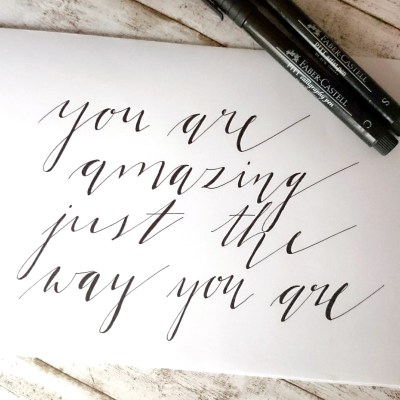 FABER CASTELL
PITT artist pen
S
FABER CASTELL
PITT calligraphy pen
C
you are
amazing
just the
way you are